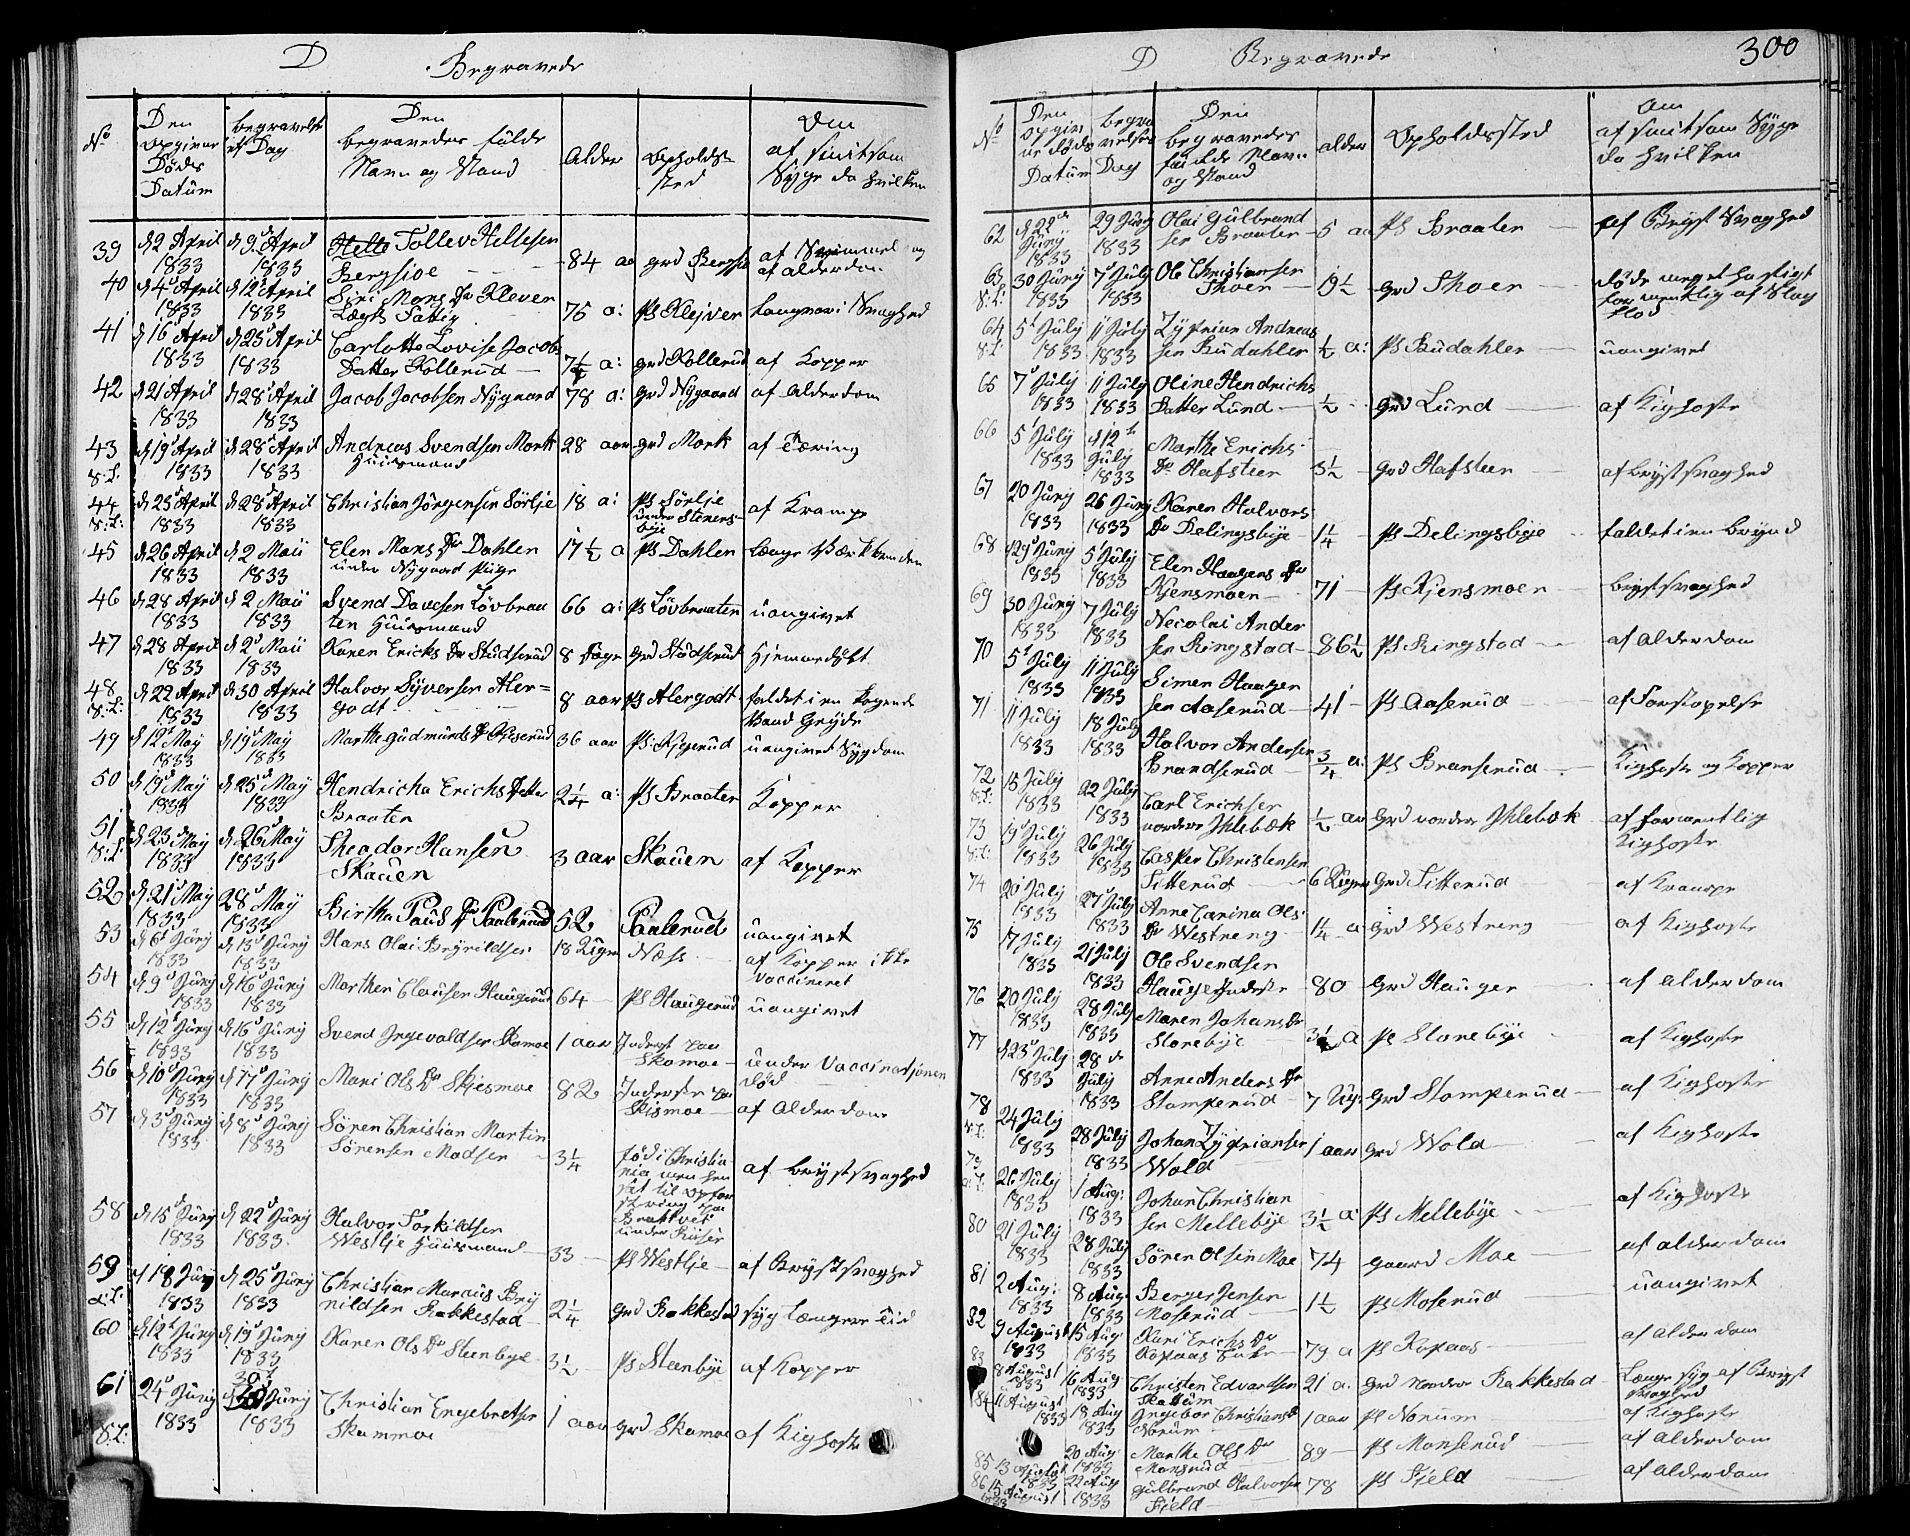 D Begravede
No
Den opgivne Døds Datum
begravelses Dag
Den begravedes fulde Navn og Stand
Alder
Opholdssted
Om af smitsom Syge da hvilken
39 d 2 April 1833 d 9 April 1833 Tollev Hellesen Bergsjoe 84 aar grd Bergsjoe af Svimmel og af alderdom
40 d 4 April 1833 d 12 April 1833 Siri Mons Dr Klever Lægs Fattig 75 a: Ps Klejver langvari Svaghed
41 d 16 April 1833 d 25 April 1833 Carlotte Lovise Jacobs Datter Kollerud 7½ a: grd Kollerud af Kopper
42 d 21 April 1833 d 28 April 1833 Jacob Jacobsen Nÿgaard 78 a: grd Nÿgaard af Alderdom
43 S:L: d 19 April 1833 d 28 April 1833 Andreas Svendsen Mork Huusmand 28 aar grd Mork af Tæring
44 S:L: d 25 April 1833 d 28 April 1833 Christian Jörgensen Sörlje 18 a: Ps Sørlje under Stenersbÿe af Krampe
45 d 26 April 1833 d 2 Maii 1833 Elen Mons Dr Dahlen under Nÿgaard Pige 17½ a Ps Dahlen længe Værkbruden
46 d 28 April 1833 d 2 Maii 1833 Svend Davdsen Lövbraaten Huusmand 66 a: Ps Lövbraaten uangivet
47 d 28 April 1833 d 2 Maii 1833 Karen Erichs Dr Studserud 8 Dage Grd Studserud Hjemmedøbt
48 S:L: d 22 April 1833 d 30 April 1833 Halvor Sÿversen Alergodt 8 aar Ps Alergodt faldet i en kogende Vand Grÿde
49 d 12 Maÿ 1833 d 19 Maÿ 1833 Marthe Gudmunds Dr 36 aar uangivet Sÿgdom
50 d 19 Maÿ 1833 d 25 Maÿ 1833 Hendricha Erichs Datter Braaten 2¼ a: Ps Braaten Kopper
51 S:L: d 23 Maÿ 1833 d 26 Maÿ 1833 Theodor Hansen Skauen 3 aar Skauen af Kopper
52 d 21 Maÿ 1833 28 Maÿ 1833 Birthe Pauls Dr Paulerud 52 Paulerud uangivet
53 d 6 Junÿ 1833 d 13 Junÿ 1833 Hans Olai Brÿnildsen 18 Uger Næss af Kopper ikke Vaccineret
54 d 9 Junÿ 1833 d 16 Junÿ 1833 Marthe Clausen Haugerud 64 Ps Haugerud uangivet
55 d 12 Junÿ 1833 d 16 Junÿ 1833 Svend Ingevaldsen Skamoe 1 aar Inderst paa Skamoe under Vaccinasjonen død
56 d 10 Junÿ 1833 d 17 Junÿ 1833 Mari Ols Dr Skjesmoe 82 Inderste paa Skismoe af Alderdom
57 d 3 Junÿ 1833 d 8 Junÿ 1833 Sören Christian Martin Sörensen Madsen 3¼ fød i Christiania men hensat til opfostring paa Braktvet under Kuser af Brÿstsvaghed
58 d 15 Junÿ 1833 d 22 Junÿ 1833 Halvor Torkildsen Westlje Huusmand 33 Ps Westlje af Brÿstsvaghed
59 a:L: d 18 Junÿ 1833 d 25 Junÿ 1833 Christian Marcus Brÿnildsen Rakkestad 2¼ grd Rakkestad sÿg længere Tid
60 d 12 Junÿ 1833 d 19 Junÿ 1833 Karen Ols Dr Steenbÿe 3½ Ps Steenbÿe af Kopper
61 S:L: 24 Junÿ 1833 30 Junÿ 1833 Christian Engebretsen Skammoe 1 aar grd Skamoe af Kighoste
D Begravede 300
No
Den opgivne Døds Datum
begravelses Dag
Den begravedes fulde Navn og Stand
alder
Opholdssted
Om af smitsom Sÿge da hvilken
62 d 22 Junÿ 1833 29 Junÿ 1833 Olai Gulbrandsen Braaten 5 aar Ps Braaten af Brÿst Svaghed
63 S:L: 30 Junÿ 1833 7 Julÿ 1833 Ole Christiansen Thoer 19½ grd Thoer døde meget hastigt formentlig af Slagflod
64 S:L: 5 Julÿ 1833 11 Julÿ 1833 Zÿprian Andreassen Budahler ½ a: Ps Budahler uangivet
65 7 Julÿ 1833 11 Julÿ 1833 Oline Hendrichs Datter Lund ½ grd Lund af Kighoste
66 5 Julÿ 1833 d 12 Julÿ 1833 Marthe Erichs Dr Hafsteen 3½ grd Hafsteen af brÿstsvaghed
67 20 Junÿ 1833 26 Junÿ 1833 Karen Halvors Dr Delingsbÿe 1¼ Ps Delingsbÿe faldet i en brÿnd
68 29 Junÿ 1833 5 Julÿ 1833 Elen Haagens Dr Kjensmoen 71 Ps Kjensmoen brÿstsvaghed
69 30 Junÿ 1833 7 Julÿ 1833 Necolai Andersen Ringstad 86½ Ps Ringstad af Alderdom
70 5 Julÿ 1833 11 Julÿ 1833 Simen Haagensen Aaserud 41 Ps Aaserud af Forstopelse
71 11 Julÿ 1833 18 Julÿ 1833 Halvor Andersen Brandserud ¾ a: Ps Branserud Kighoste og Kopper
72 S:L: 15 Julÿ 1833 22 Julÿ 1833 Carl Erichsen nordre Ihlebæk ½ aar Grd nordre Ihlebæk af formentlig Kighoste
73 S:L: 19 Julÿ 1833 26 Julÿ 1833 Casper Christensen Sitterud 6 Uger Grd Sitterud af Krampe
74 20 Julÿ 1833 27 Julÿ 1833 Anne Carina Ols Dr Westreng 1¼ a Grd Westreng af Kighoste
75 17 Julÿ 1833 21 Julÿ 1833 Ole Svendsen Hauger Inderste 80 Grd Hauger af Alderdom
76 20 Julÿ 1833 28 Julÿ 1833 Maren Johans Dr Storebÿe 3½ a Ps Storebÿe af Kighoste
77 d 23 Julÿ 1833 28 Julÿ 1833 Anne Anders Dr Stamperud 7 Ug: Grd Stamperud af Kighoste
78 S:L: 24 Julÿ 1833 28 Julÿ 1833 Johan Zÿpriansen Wold 1 aar Grd Wold af Kighoste
79 a:L: 26 Julÿ 1833 1 Aug: 1833 Johan Christiansen Mellebÿe 3½ a: Ps Mellebÿe af Kighoste
80 21 Julÿ 1833 28 Julÿ 1833 Sören Olsen Moe 74 gaard Moe af alderdom
81 2 Aug: 1833 8 Aug 1833 Berger Jensen Moserud 1½ Ps Moserud uangivet
82 9 August 1833 15 Aug 1833 Kari Erichs Dr Kopaas Enke 79 a Ps Kopaas af Alderdom
83 8 August 1833 16 Aug 1833 Christen Edvardsen Rakkestad 21 a: Grd nordre Rakkestad Længe sÿg af Brÿst Svaghed
84 11 August 1833 18 Aug 1833 Ingebor Christians Dr Norum 1 aar Ps Norum af Kighoste
85 13 August 1833 20 Aug 1833 Marthe Ols Dr Monsrud 89 Ps Monserud af Alderdom
86 15 August 1833 22 Aug 1833 Gulbrand Halvorsen Fjeld 78 Ps Fjeld af Alderdom